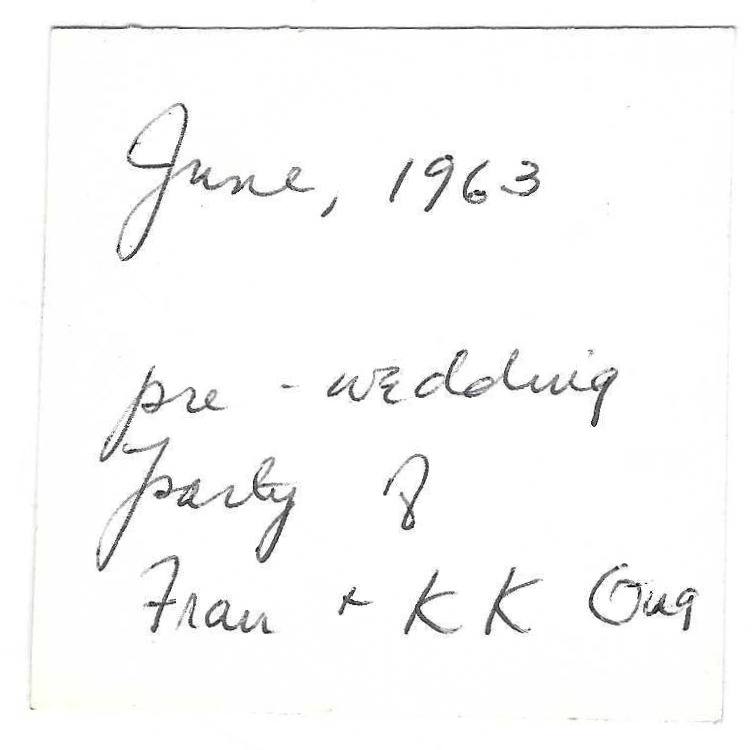 June, 1963
pre-wedding
party of
Fran + KK Ong